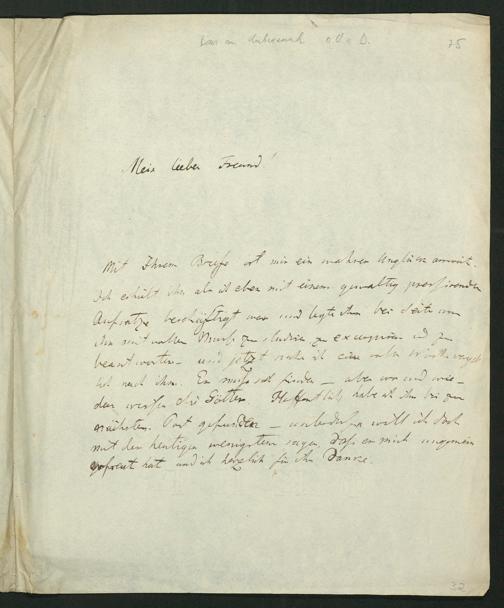 an o. U. u. D. 75
Mein lieber Freund!
Mit Ihrem Briefe ist mir ein wahres Unglück
Ich erhielt ihn als ich eben mit einem gewaltig pressirenden
Aufsatze beschäftigt war und legte ihn bei Seite um
ihn mit voller Muße zu studiren zu und zu
beantworten – und jetzt suche ich eine volle Woche
lich nach ihm. Er muß sich finden – aber wo und wie –
das wissen die Götter. Hoffentlich habe ich ihn bis zur
nächsten Post gefunden – unterdessen will ich doch
mit der heutigen wenigstens sagen, daß er mich ungemein
gefreut hat und ich herzlich für ihn Danke.
32